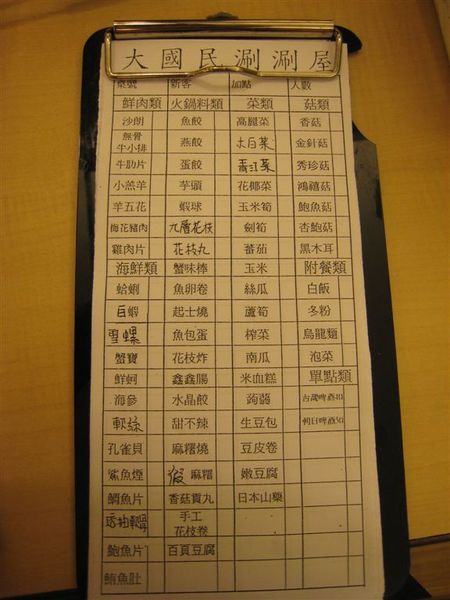 大國民涮涮屋
桌號 新客 加點 人數
鮮肉類 火鍋料類 菜類 菇類
沙朗 魚餃 高麗菜 香菇
無骨牛小排 燕餃 大白菜 金針菇
牛肋片 蛋餃 青江菜 秀珍菇
小羔羊 芋頭 花椰菜 鴻禧菇
羊五花 蝦球 玉米筍 鮑魚菇
梅花豬肉 九層花枝 劍筍 杏鮑菇
雞肉片 花枝丸 蕃茄 黑木耳
海鮮類 蟹味棒 玉米 附餐類
蛤蜊 魚卵卷 絲瓜 白飯
白蝦 起士燒 蘆筍 冬粉
雪螺 魚包蛋 榨菜 烏龍麵
蟹寶 花枝炸 南瓜 泡菜
鮮蚵 鑫鑫腸 米血糕 單點類
海參 水晶餃 蒟蒻 台灣啤酒40
軟絲 甜不辣 生豆包 朝日啤酒50
孔雀貝 麻糬燒 豆皮卷
鯊魚煙 麻糬 嫩豆腐
鯛魚片 香菇貢丸 日本山藥
手工花枝卷
鮑魚片 百頁豆腐
鮪魚肚